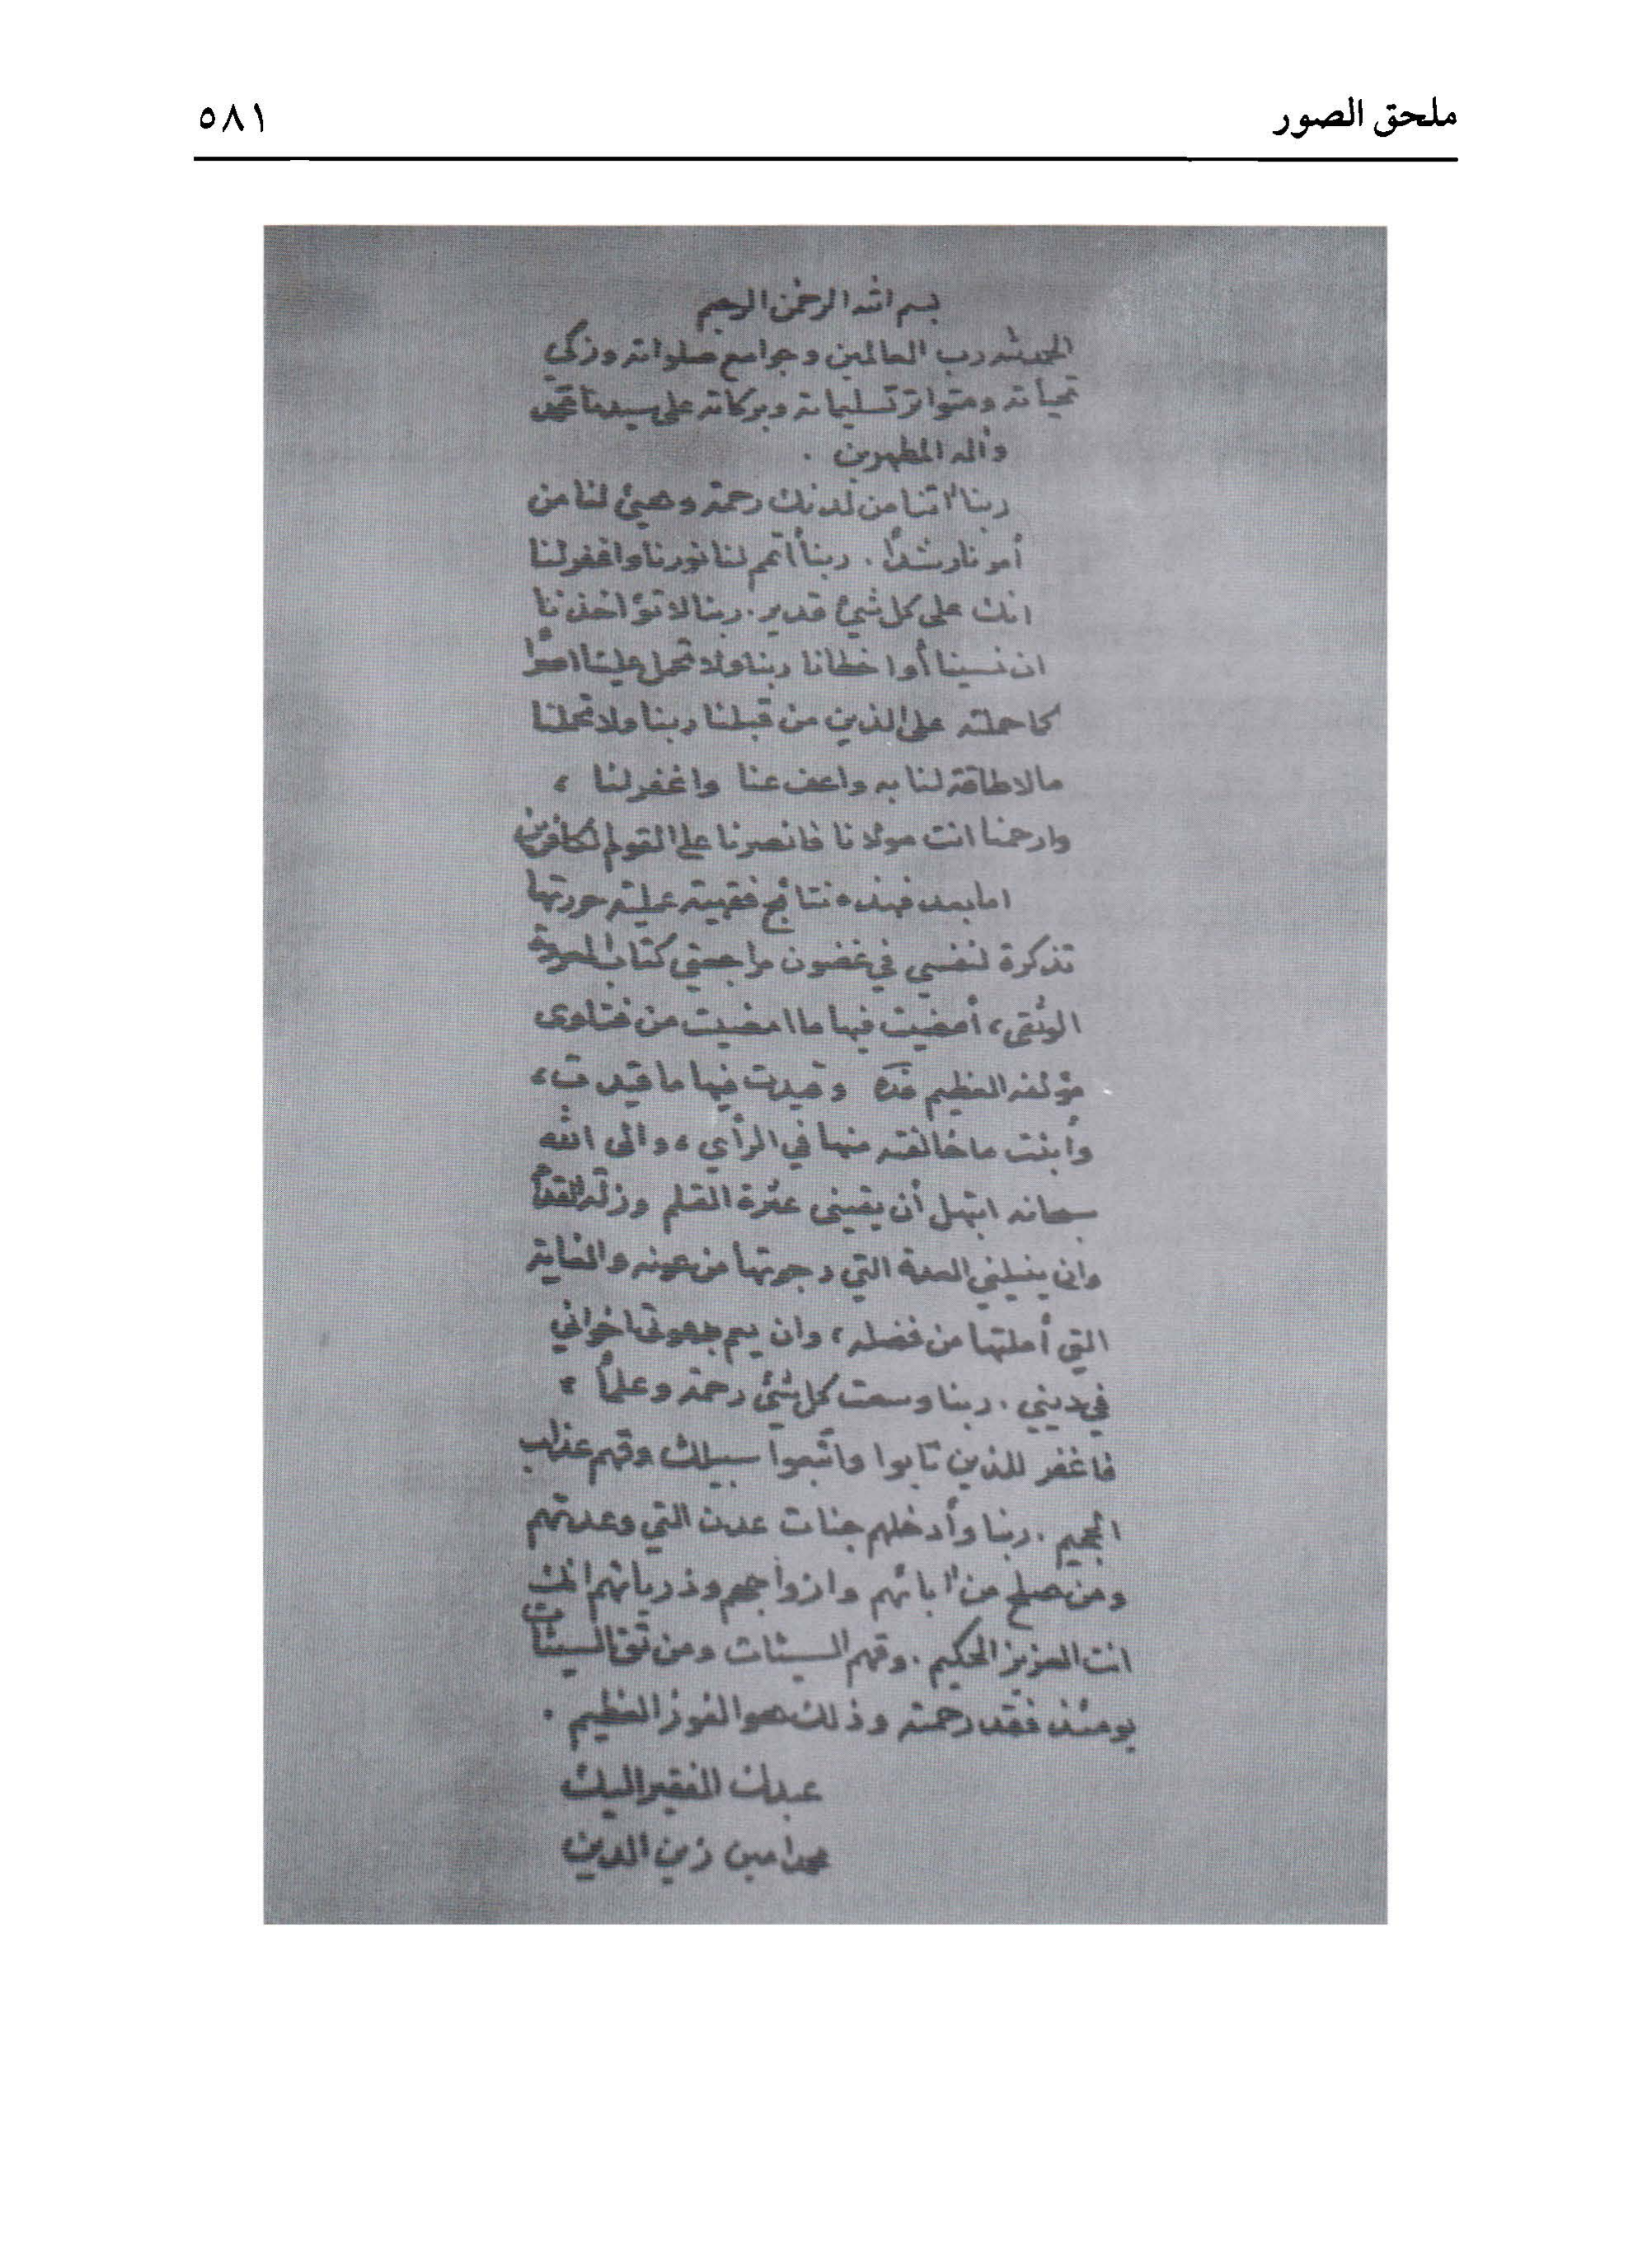 ملحق الصور
٥٨١
بسم الله الرحمن الرحيم
الحمد لله رب العالمين وجوامع صلواته وزكي
تحياته ومتواتر تسليماته وبركاته على سيدنا محمد
وآله المطهرين .
ربنا آتنا من لدنك رحمة وهيئ لنا من
أمرنا رشداً . ربنا أتمم لنا نورنا واغفر لنا
انك على كل شيئ قدير . ربنا لا تؤاخذنا
ان نسينا أو اخطانا ربنا ولا تحمل علينا اصراً
كما حملته على الذين من قبلنا ربنا ولا تحملنا
مالا طاقة لنا به واعف عنا واغفر لنا ،
وارحمنا انت مولانا فانصرنا على القوم الكافرين
اما بعد فهذه نتائج فقهية عملية حررتها
تذكرة لنفسي في غضون مراجعتي كتاب العروة
الوثقى ، أمضيت فيها ما امضيت من فتاوى
مؤلفه العظيم قده وقيدت فيها ما قيدت ،
وأبنت ما خالفته منها في الرأي ، والى الله
سبحانه ابتهل أن يقيني عثرة القلم وزلة القدم
وان ينيلني العدة التي رجوتها من عونه والغاية
التي أملتها من فضله ، وان يعم بدعوتي اخواني
في ديني . ربنا وسعت كل شيئ رحمة وعلماً ،
فاغفر للذين تابوا واتبعوا سبيلك وقهم عذاب
الجحيم . ربنا وأدخلهم جنات عدن التي وعدتهم
ومن صلح من آبائهم وازواجهم وذرياتهم انك
انت العزيز الحكيم . وقهم السيئات ومن تق السيئات
يومئذ فقد رحمته وذلك هو الفوز العظيم .
عبدك الفقير اليك
محمد امين زين الدين